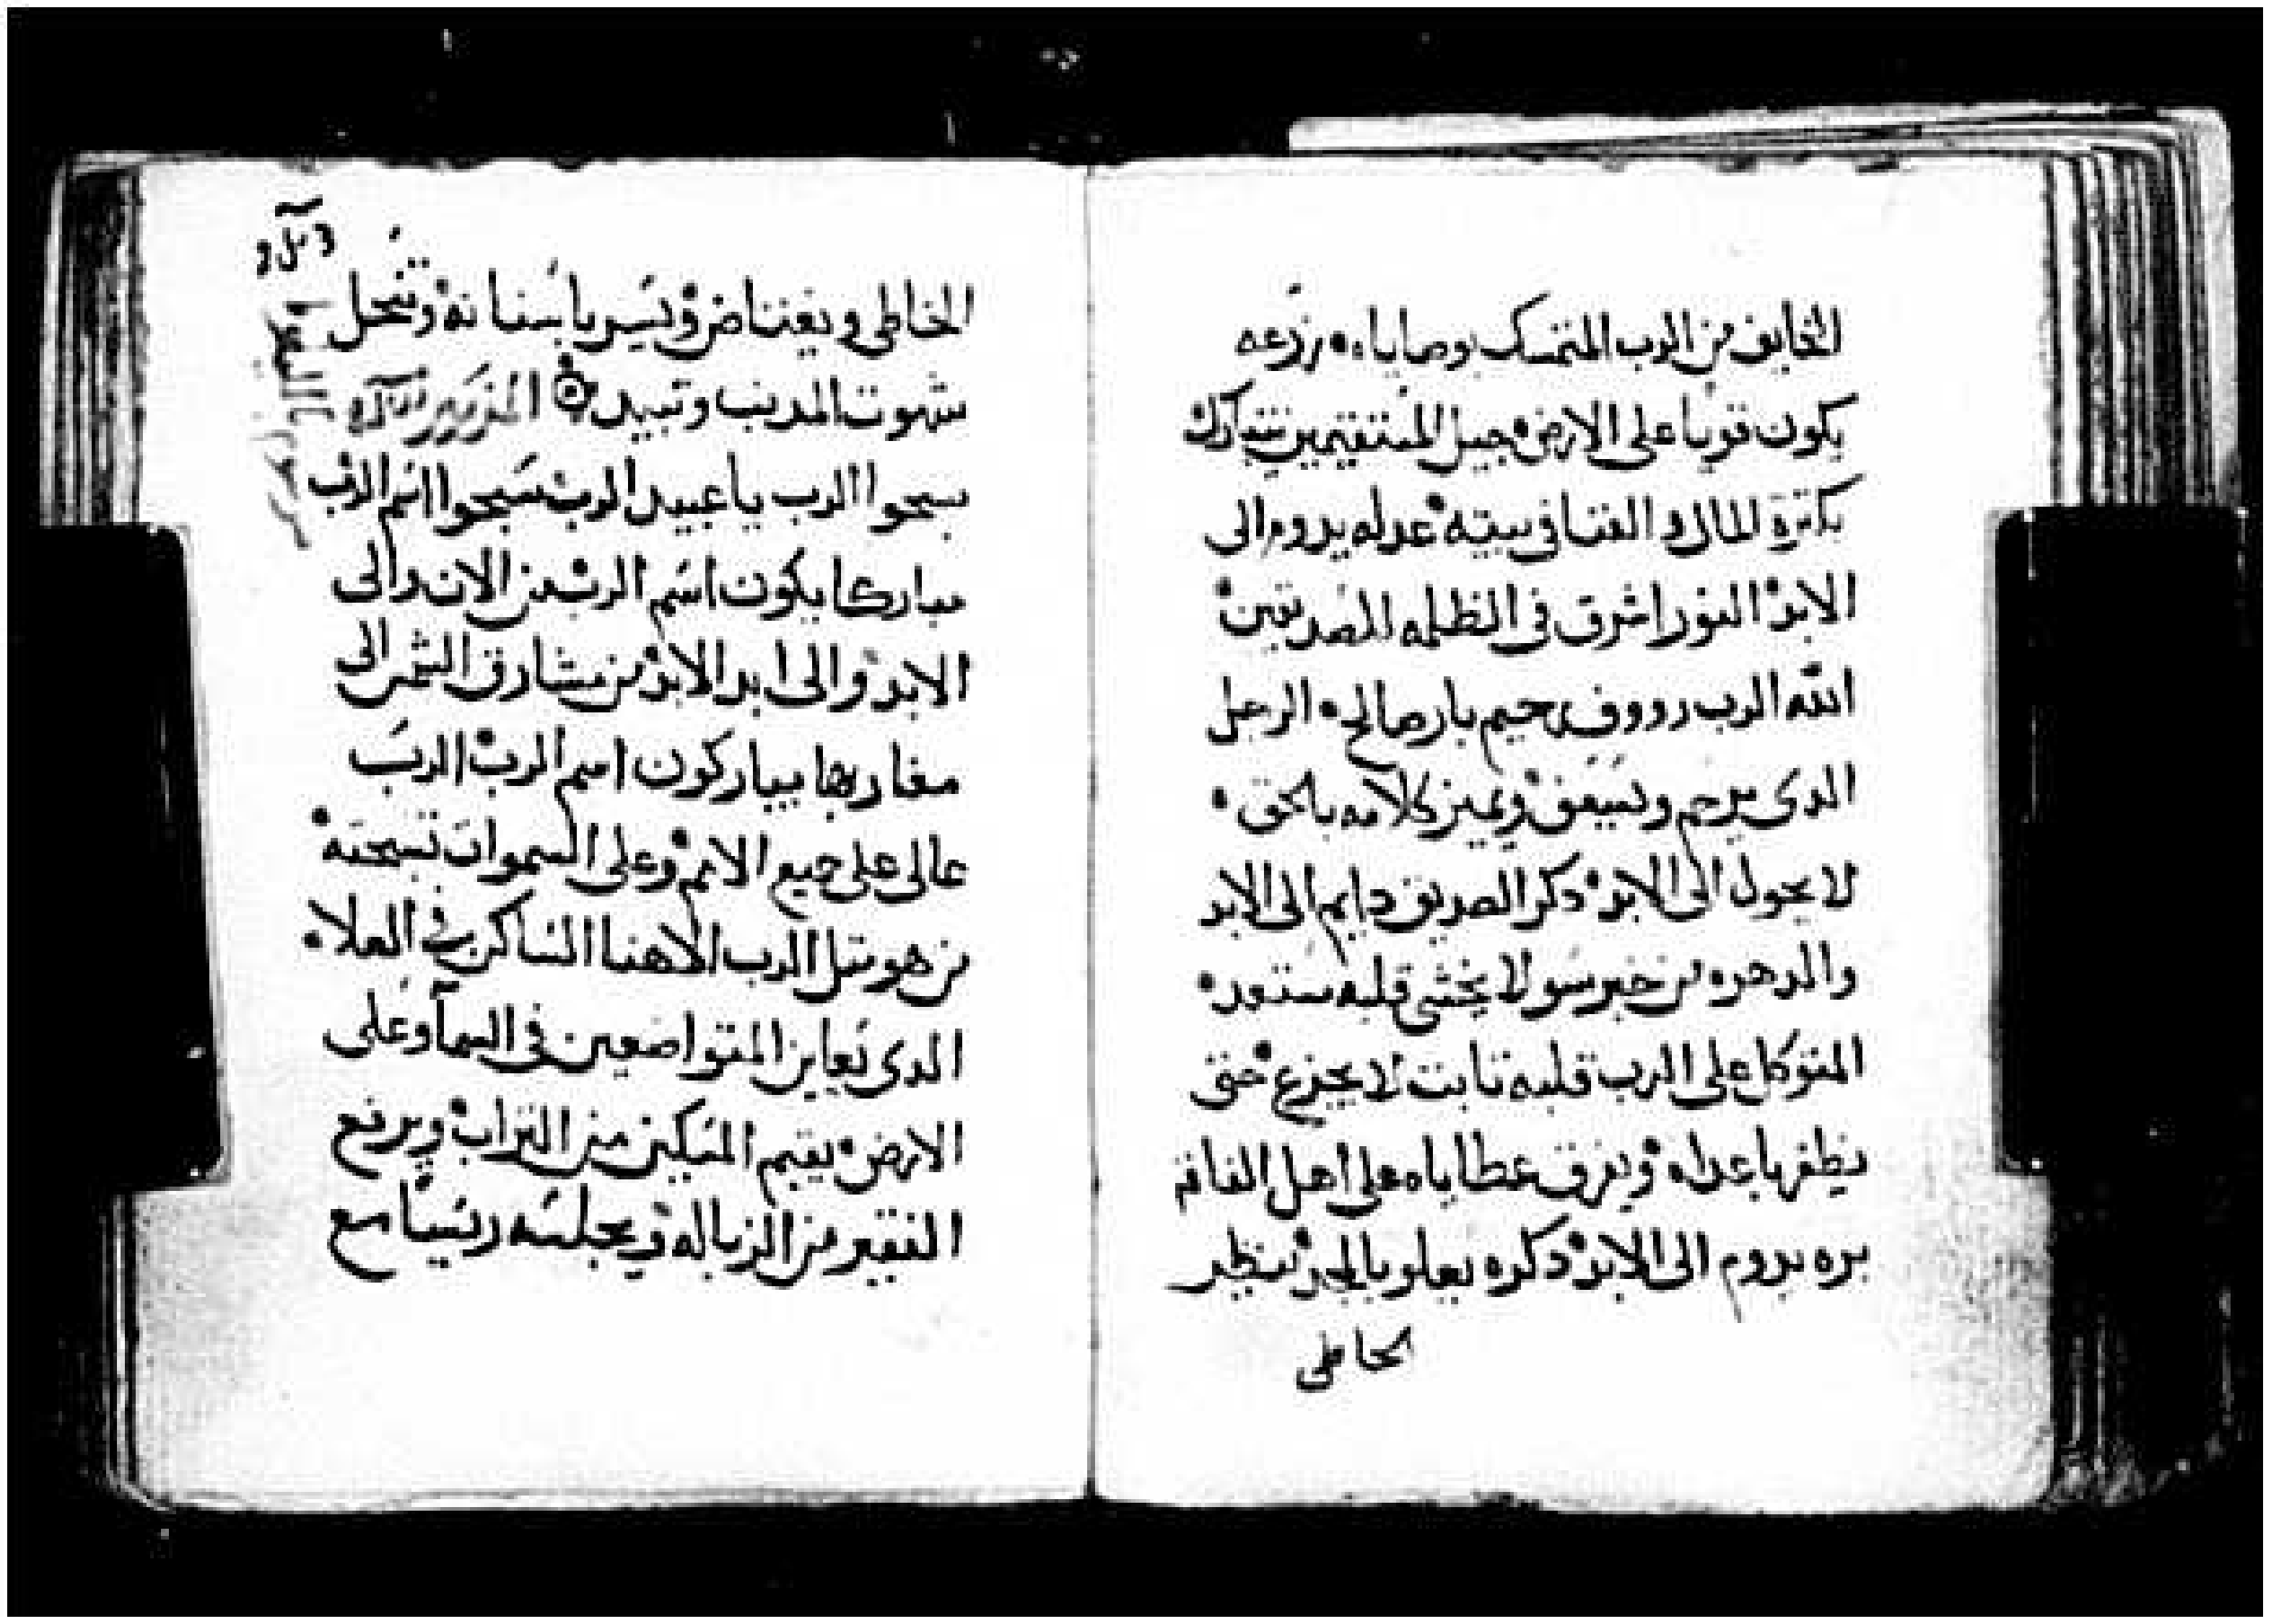 الخايف من الرب المتمسك بوصاياه زرعه
يكون قويا على الارض جيل المستقيمين يتبارك
بكثرة المال والغنا في بيته عدله يدوم الى
الابد النور اشرق في الظلمه للصديقين
الله الرب رووف رحيم بار صالح الرجل
الدى يرحم ويسعف ويميز كلامه بالحق
لا يحول الى الابد دكر الصديق دايم الى الابد
والدهر من خبر سو لا يخشى قلبه مستعد
المتوكل على الرب قلبه تابت لا يجزع حتى
يظفر باعداه ويفرق عطاياه على اهل الفاقه
بره يدوم الى الابد دكره يعلو بالمجد ينظر
الخاطى
الخاطى ويغتاض ويسر باسنانه وتنحل
شهوت المدنب وتبيد المزمير
سبحوا الرب يا عبيد الرب سبحوا اسم الرب
مباركا يكون اسم الرب من الان والى
الابد والى ابد الابد من مشارق الشمس الى
مغاربها يباركون اسم الرب الرب
عالى على جميع الامم وعلى السموات تسبحته
من هو متل الرب الاهنا الساكن في العلا
الدى يعاين المتواضعين في السما وعلى
الارض يقيم المسكين من التراب ويرفع
الفقير من الزباله ويجلسه رئيسا مع